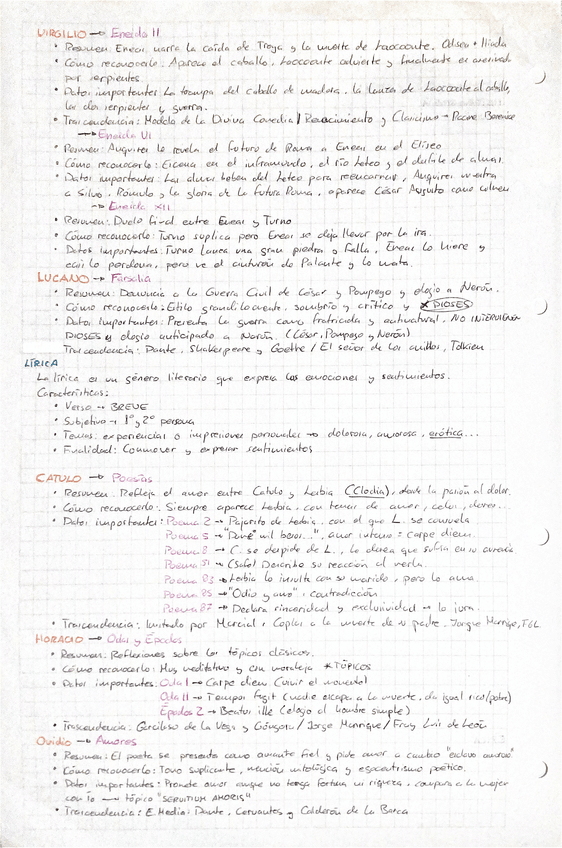 VIRGILIO → Eneida II
• Resumen: Eneas narra la caída de Troya y la muerte de Laocoonte. Odisea + Ilíada
• Cómo reconocerlo: Aparece el caballo, Laocoonte advierte y finalmente es asesinado
por serpientes.
• Datos importantes: La trampa del caballo de madera, la lanza de Laocoonte al caballo,
las dos serpientes y guerra.
• Trascendencia: Modelo de la Divina Comedia / Renacimiento y Clasicismo →
→ Eneida VI
• Resumen: Anquises le revela el futuro de Roma a Eneas en el Elíseo
• Cómo reconocerlo: Escena en el inframundo, el río Leteo y el desfile de almas.
• Datos importantes: Las almas beben del Leteo para reencarnar, Anquises muestra
a Silvio, Rómulo y la gloria de la futura Roma, aparece César Augusto como culmen
→ Eneida XII
• Resumen: Duelo final entre Eneas y Turno
• Cómo reconocerlo: Turno suplica pero Eneas se deja llevar por la ira.
• Datos importantes: Turno lanza una gran piedra y falla, Eneas lo hiere y
casi lo perdona, pero ve el cinturón de Palante y lo mata.
LUCANO → Farsalia
• Resumen: Denuncia a la Guerra Civil de César y Pompeyo y elogio a Nerón.
• Cómo reconocerlo: Estilo grandilocuente, sombrío y crítico y X DIOSES
• Datos importantes: Presenta la guerra como fratricida y antinatural, NO INTERVIENEN
DIOSES y elogio anticipado a Nerón. (César, Pompeyo y Nerón)
Trascendencia: Dante, Shakespeare y Goethe / El señor de los anillos, Tolkien
LÍRICA
La lírica es un género literario que expresa las emociones y sentimientos.
Características:
• Verso → BREVE
• Subjetivo → 1º y 2º persona
• Temas: experiencias o impresiones personales → dolorosa, amorosa, erótica...
• Finalidad: Conmover y expresar sentimientos
CATULO → Poesías
• Resumen: Refleja el amor entre Catulo y Lesbia (Clodia), desde la pasión al dolor.
• Cómo reconocerlo: Siempre aparece Lesbia, con temas de amor, celos, deseo...
• Datos importantes: Poema 2 → Pajarito de Lesbia, con el que L. se consuela
Poema 5 → "Dame mil besos...", amor intenso = carpe diem.
Poema 8 → C. se despide de L., le desea que sufra en su ausencia
Poema 51 → (Safo) Describe su reacción al verla.
Poema 83 → Lesbia lo insulta con su marido, pero lo ama
Poema 85 → "Odio y amo", contradicción
Poema 87 → Declara sinceridad y exclusividad → lo jura.
• Trascendencia: Imitado por Marcial, Coplas a la muerte de su padre, Jorge Manrique,
HORACIO → Odas y Épodos
• Resumen: Reflexiones sobre los tópicos clásicos.
• Cómo reconocerlo: Muy meditativo y con moraleja *TÓPICOS
• Datos importantes: Oda I → Carpe diem (vivir el momento)
Oda II → Tempus fugit (nadie escapa a la muerte, da igual rico/pobre)
Épodos 2 → Beatus ille (elogio al hombre simple)
• Trascendencia: Garcilaso de la Vega y Góngora / Jorge Manrique / Fray Luis de León
OVIDIO → Amores
• Resumen: El poeta se presenta como amante fiel y pide amor a cambio "esclavo amoroso"
• Cómo reconocerlo: Tono suplicante, mención mitológica y egocentrismo poético.
• Datos importantes: Promete amor aunque no tenga fortuna ni riqueza, compara a la mujer
con Ío → tópico "SERVITIUM AMORIS"
• Trascendencia: E. Media: Dante, Cervantes y Calderón de la Barca